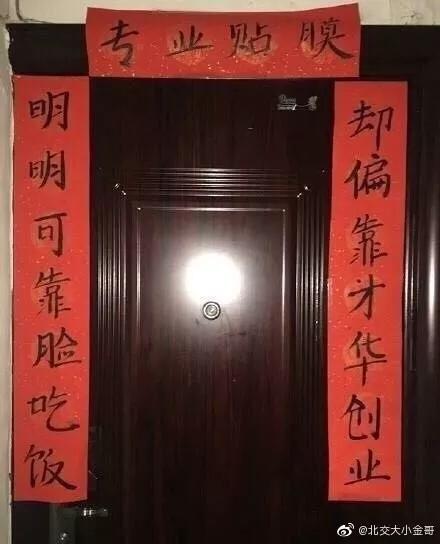 专业贴膜
明明可靠脸吃饭
却偏靠才华创业
@北交大小金哥